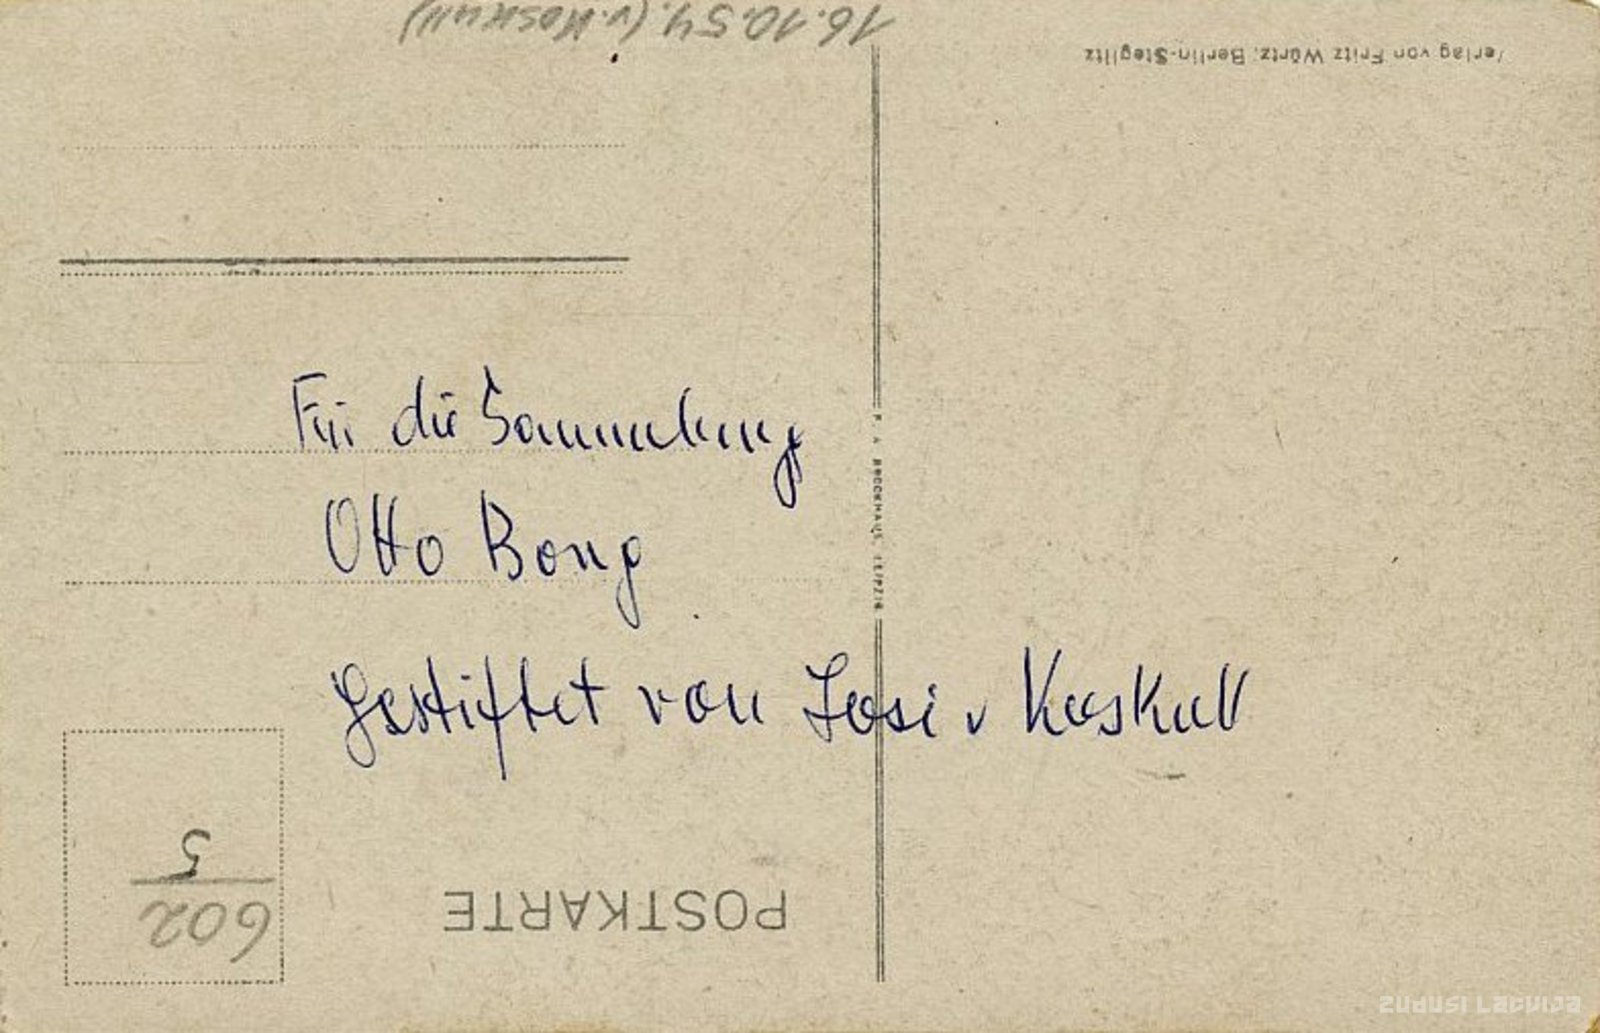 16.10.54. (v. Koskull)
Verlag von Fritz Würtz, Berlin-Steglitz
Für die Sammlung
Otto Bong
F. A. BROCKHAUS, LEIPZIG
gestiftet von Josi v Koskull
602
5
POSTKARTE
zudusi Latvija